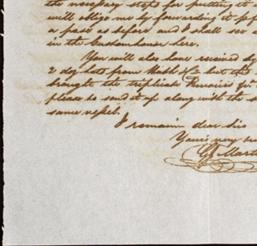 the necessary steps for putting it
will oblige me by forwarding it p
a pass as before and I shall see
in the Customhouse here.
You will also have received by
2 dog hats from
brought the triplicate
please to send it up along with the
same vessel.
I remain dear Sir
Yours very